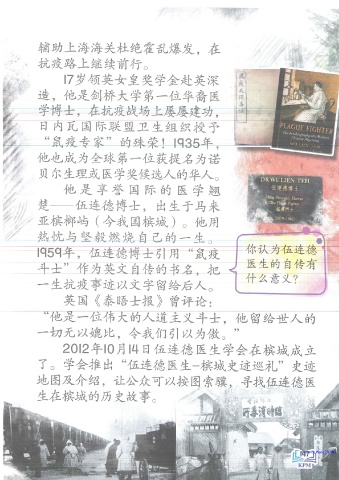 辅助上海海关杜绝霍乱爆发，在
抗疫路上继续前行。
17岁领英女皇奖学金赴英深
造，他是剑桥大学第一位华裔医
学博士，在抗疫战场上屡屡建功，
日内瓦国际联盟卫生组织授予
“鼠疫专家”的殊荣！1935年，
他也成为全球第一位获提名为诺
贝尔生理或医学奖候选人的华人。
他是享誉国际的医学翘
楚——伍连德博士，出生于马来
亚槟榔屿（今我国槟城）。他用
热忱与坚毅燃烧自己的一生。
1959年，伍连德博士引用“鼠疫
斗士”作为英文自传的书名，把
一生抗疫事迹以文字留给后人。
英国《泰晤士报》曾评论：
“他是一位伟大的人道主义斗士，他留给世人的
一切无以媲比，令我们引以为傲。”
2012年10月14日伍连德医生学会在槟城成立
了。学会推出“伍连德医生-槟城史迹巡礼”史迹
地图及介绍，让公众可以按图索骥，寻找伍连德医
生在槟城的历史故事。
PLAGUE FIGHTER
DR.WU LIEN TEH
伍连德博士
你认为伍连德
医生的自传有
什么意义？
147
KPM